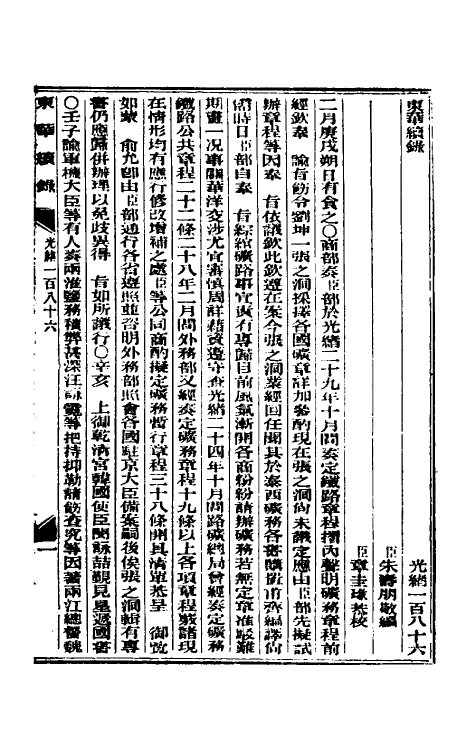 東華續錄
光緒一百八十六
臣朱壽朋敬編
臣章圭瑑恭校
二月庚戌朔日有食之〇商部奏臣部於光緒二十九年十月間奏定鐵路章程摺內聲明礦務章程前
經欽奉　諭旨飭令劉坤一張之洞採擇各國礦章詳加參酌現在張之洞尚未議定應由臣部先擬試
辦章程等因奉　旨依議欽此欽遵在案今張之洞業經回任聞其於泰西礦務各書購覓甫齊編譯尚
需時日臣部自奉　旨綜綰礦路事宜責有專歸目前風氣漸開各商紛紛請辦礦務若無定章准駁難
期畫一况事關華洋交涉尤宜審慎周詳藉資遵守查光緒二十四年十月間路礦總局曾經奏定礦務
鐵路公共章程二十二條二十八年二月間外務部又經奏定礦務章程十九條以上各項章程覈諸現
在情形均有應行修改增補之處臣等公同商酌擬定礦務暫行章程三十八條開具清單恭呈　御覽
如蒙　俞允即由臣部通行各省遵照並咨明外務部照會各國駐京大臣備案嗣後俟張之洞輯有專
書仍應歸併辦理以免歧異得　旨如所議行〇辛亥　上御乾清宮韓國使臣閔詠喆覲見呈遞國書
〇壬子諭軍機大臣等有人奏兩淮鹽務積弊甚深汪詠霓等把持抑勒請飭查究等因著兩江總督魏
東華續錄
光緒一百八十六
一